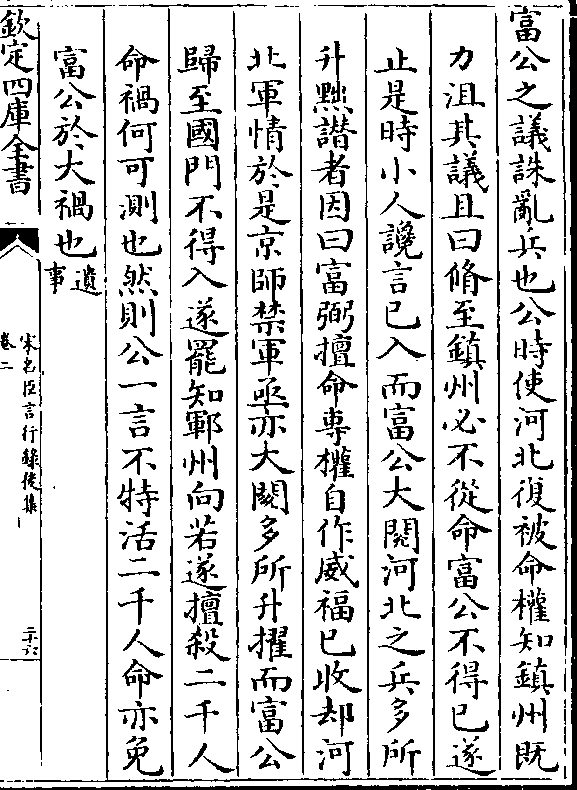 富公之議誅亂兵也公時使河北復被命權知鎮州既
力沮其議且曰脩至鎮州必不從命富公不得已遂
止是時小人讒言已入而富公大閱河北之兵多所
升黜譖者因曰富弼擅命專權自作威福已收却河
北軍情於是京師禁軍亟亦大閱多所升擢而富公
歸至國門不得入遂罷知鄆州向若遂擅殺二千人
命禍何可測也然則公一言不特活二千人命亦免
富公於大禍也遺事
欽定四庫全書
宋名臣言行錄後集
卷二
二十六